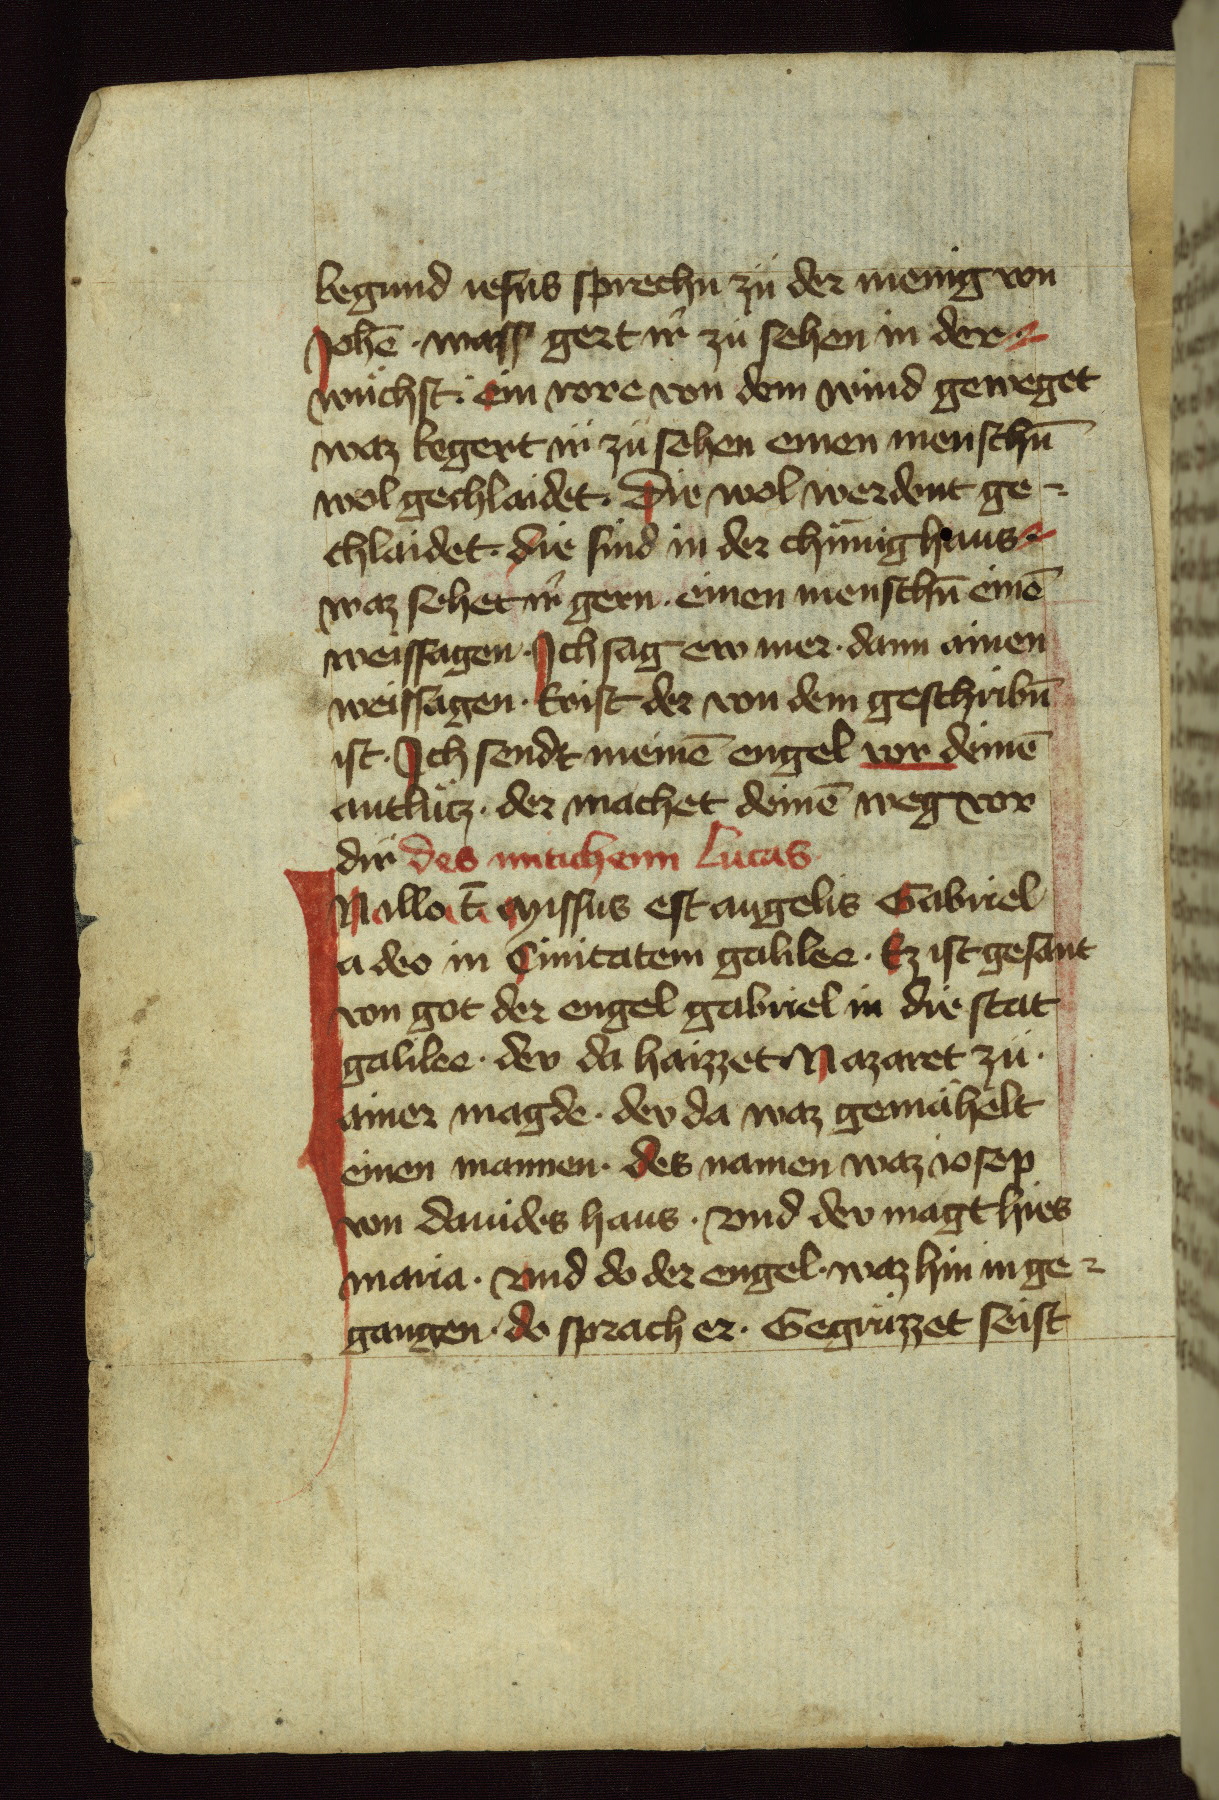 begund iesus sprechn zu der menig von
Joħē · wass gert ir zu sehen in der
wuchst · ein rore von dem wind geweget
waz begert ir zu sehen einen menschn̄
wol gechlaidet · Die wol werdent ge-
chlaidet · die sind in der chunig haus
waz sehet ir gern · einen menschn̄ einē
weissagen · Ich sag ew mer · dann ainen
weissagen · Er ist der von dem geschribn̄
ist · Ich sendt meinē engel vor deinē
antlutz · der machet deinē weg vor
dir des mitichenn Lucas
In illo t̄ Missus est angelis Gabriel
a deo in Ciuitatem galilee · Ez ist gesant
von got der engel gabriel in die stat
galilee · dev da haizzet Nazaret zu ·
ainer magde · dev da waz gemähelt
einen mannen · des namen waz iosep
von dauides haus · vnd dev magt hies
maria · vnd do der engel · waz hin in ge-
gangen · do sprach er · Gegruzzet seist